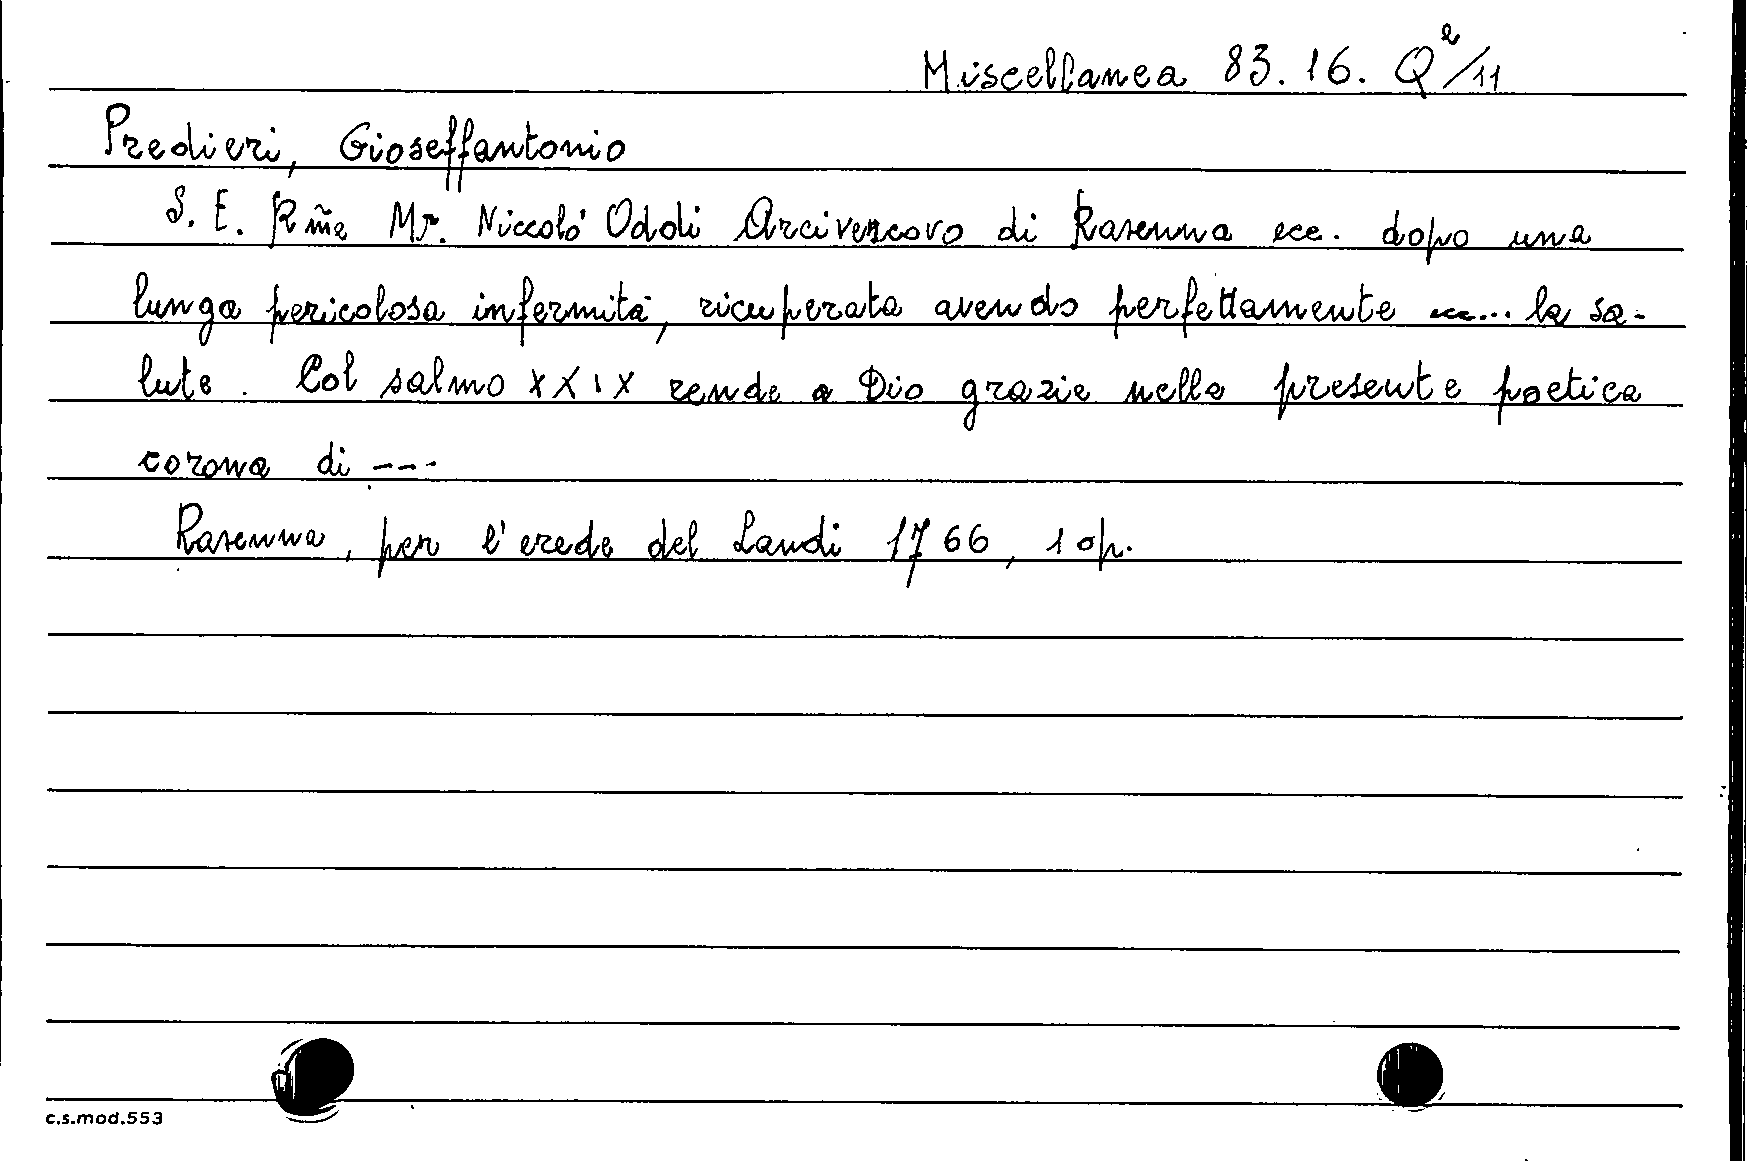 Miscellanea 83.16. Q²/11
Predieri, Gioseffantonio
S. E. Rm̃a Mr. Niccoló Oddi Arcivescovo di Ravenna ecc. dopo una
lunga pericolosa infermitá, ricuperata avendo perfettamente ecc... la sa-
lute. Col salmo XXIX rende a Dio grazie nella presente poetica
corona di ---
Ravenna, per l'erede del Landi 1766, 1 op.
c.s.mod.553